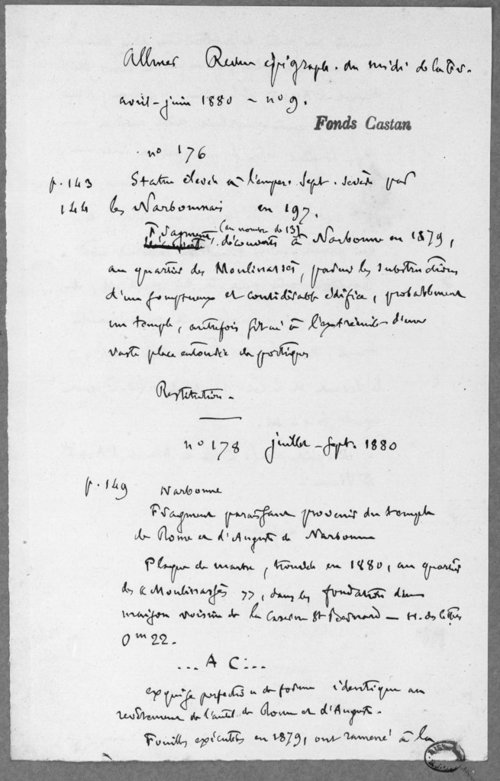 Allmer Revue épigraph. du midi de la Fr.
avril-juin 1880 - no 9.
Fonds Castan
no 176
p. 143 Statue élevée à l'emper. Sept. Sévère par
144 les Narbonnais en 197.
Fragments (au nombre de 13) découverts à Narbonne en 1879,
au quartier des Moulinassés, parmi les substructions
d'un somptueux et considérable édifice, probablement
un temple, autrefois situé à l'extrémité d'une
vaste place entourée de portiques
Restitution.
no 178 juillet-septe 1880
p. 149 Narbonne
Fragment paraissant provenir du temple
de Rome et d'Auguste de Narbonne
Plaque de marbre, trouvée en 1880, au quartier
des « Moulinassés », dans les fondations d'une
maison voisine de la Caserne St Bernard - H. des lettres
0m 22.
... A C ...
exquise perfection de forme identique au
revêtement de l'autel de Rome et d'Auguste.
Fouilles exécutées en 1879, ont ramené à la